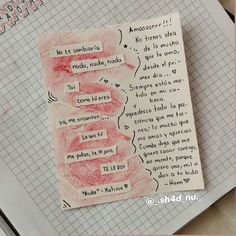 No te cambiaría
nada, nada, nada
Tal
como tú eres
tú me encantas
Lo que tú
me pidas, te lo doy
TE LO DOY
"Nada" - Matisse
Amooorrr!!!
No tienes idea
de lo mucho
que te amo,
desde el pri
mer día...
Siempre estás me-
tido en mi ca
beza.
agradezco toda la pa
ciencia que me tie-
nes, lo mucho que
me amas y aprecias
Cuando diga que me
quiero casar contigo
no mento, porque
quiero una, mil vi
das a tu lado
@_sh4d_nu._